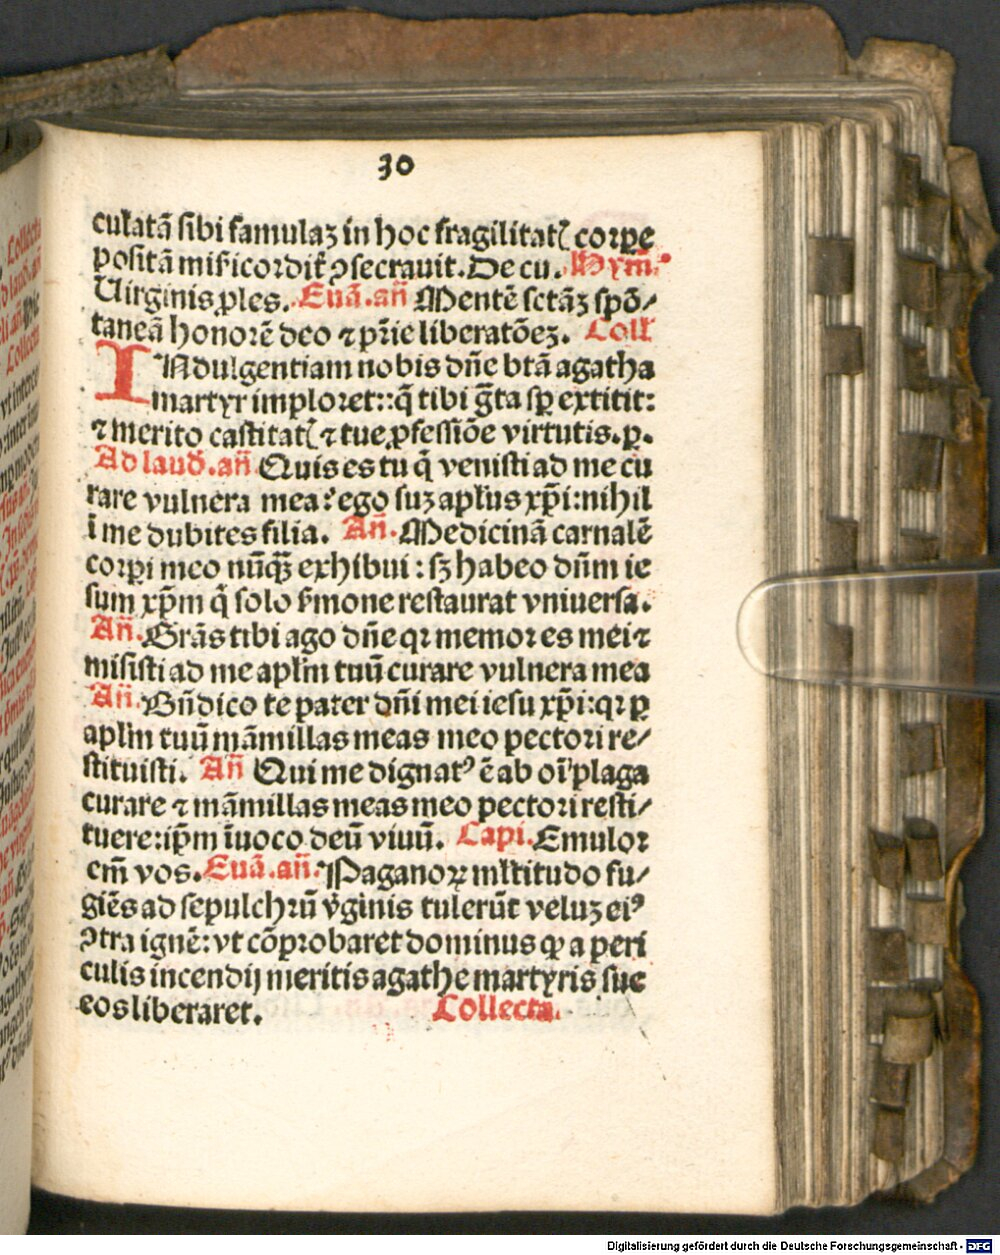 30
culatā sibi famulaꝫ in hoc fragilitatꝭ corpe
positā mis̄icordit̄ ꝯsecrauit. De cu. Hym̄.
Uirginis ꝓles. Euā. an̄ Mentē sctāꝫ spō/
taneā honorē deo ⁊ pr̄ie liberatōeꝫ. Coll̄
INdulgentiam nobis dn̄e btā agatha
martyr imploret: q̄ tibi ḡta sꝑ extitit:
⁊ merito castitatꝭ ⁊ tue ꝓfessiōe virtutis. ꝑ.
Ad laud̄. an̄ Quis es tu q̄ venisti ad me cu
rare vulnera mea? ego suꝫ apl̄us xp̄i: nihil
ī me dubites filia. An̄. Medicinā carnalē
corpi meo nūq̄ꝫ exhibui: sꝫ habeo dn̄m ie
sum xp̄m q̄ solo s̄mone restaurat vniuersa.
An̄. Grās tibi ago dn̄e qꝛ memor es mei ⁊
misisti ad me apl̄m tuū curare vulnera mea
An̄. Bn̄dico te pater dn̄i mei iesu xp̄i: qꝛ ꝑ
apl̄m tuū māmillas meas meo pectori re/
stituisti. An̄ Qui me dignatꝰ ē ab oī plaga
curare ⁊ māmillas meas meo pectori resti/
tuere: ip̄m īuoco deū viuū. Capi. Emulor
em̄ vos. Euā. an̄. Paganoꝝ ml̄titudo fu/
giēs ad sepulchrū v̄ginis tulerūt veluꝫ eiꝰ
ꝯtra ignē: vt cōprobaret dominus ꝙ a peri
culis incendij meritis agathe martyris sue
eos liberaret. Collecta.
Digitalisierung gefördert durch die Deutsche Forschungsgemeinschaft - DFG